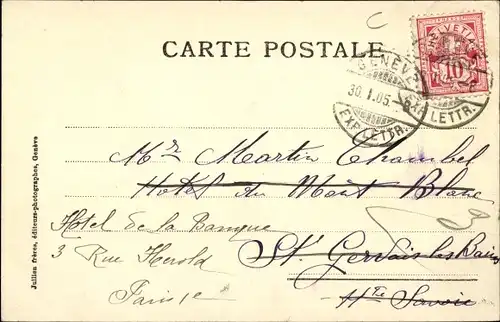 CARTE POSTALE
HELVETIA
10
GENÈVE
30.I.05.
EXP. LETTR.
EXP. LETTR.
Mr Martin Chambel
Hotel du Mont Blanc
Hotel de la Banque
3 Rue Herold
St Gervais les Bains
Paris
Hte Savoie
Jullien frères, éditeurs-photographes, Genève